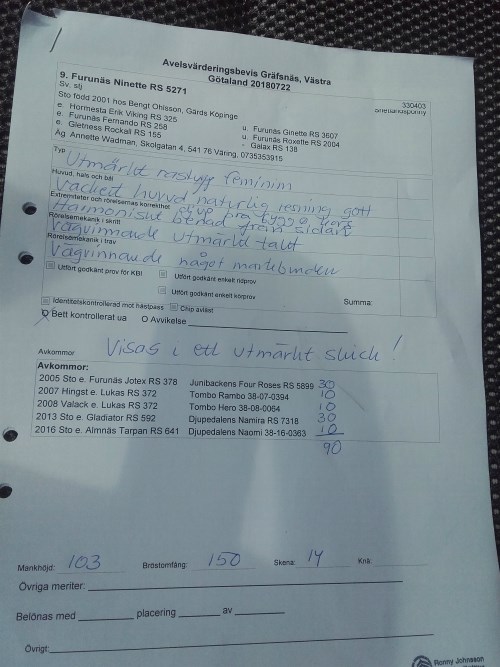 Avelsvärderingsbevis Gräfsnäs, Västra
Götaland 20180722
9. Furunäs Ninette RS 5271
330403
Sv. stj
Shetlandsponny
Sto född 2001 hos Bengt Ohlsson, Gårds Köpinge
e. Hormesta Erik Viking RS 325
u. Furunäs Ginette RS 3607
e. Furunäs Fernando RS 258
u. Furunäs Roxette RS 2004
e. Gletness Rockall RS 155
- Galax RS 138
Äg Annette Wadman, Skolgatan 4, 541 76 Väring, 0735353915
Typ
Utmärkt rastypp feminim
Huvud, hals och bål
Vackert huvud naturlig resning gott
djup bra rygg o
Extremiteter och rörelsernas korrekthet
Harmoniskt benad från sidan
Rörelsemekanik i skritt
Vägvinnande utmärkt takt
Rörelsemekanik i trav
Vägvinnande något markbunden
Utfört godkänt prov för KBI
Utfört godkänt enkelt ridprov
Utfört godkänt enkelt körprov
Summa:
Identitetskontrollerad mot hästpass
Chip avläst
O Bett kontrollerat ua
O Avvikelse
Avkommor
Visas i ett utmärkt skick!
Avkommor:
2005 Sto e. Furunäs Jotex RS 378 Junibackens Four Roses RS 5899 30
2007 Hingst e. Lukas RS 372 Tombo Rambo 38-07-0394 10
2008 Valack e. Lukas RS 372 Tombo Hero 38-08-0064 10
2013 Sto e. Gladiator RS 592 Djupedalens Namira RS 7318 30
2016 Sto e. Almnäs Tarpan RS 641 Djupedalens Naomi 38-16-0363 10
90
Mankhöjd: 103 Bröstomfång: 150 Skena: 14 Knä:
Övriga meriter:
Belönas med placering av
Övrigt:
Ronny Johnsson